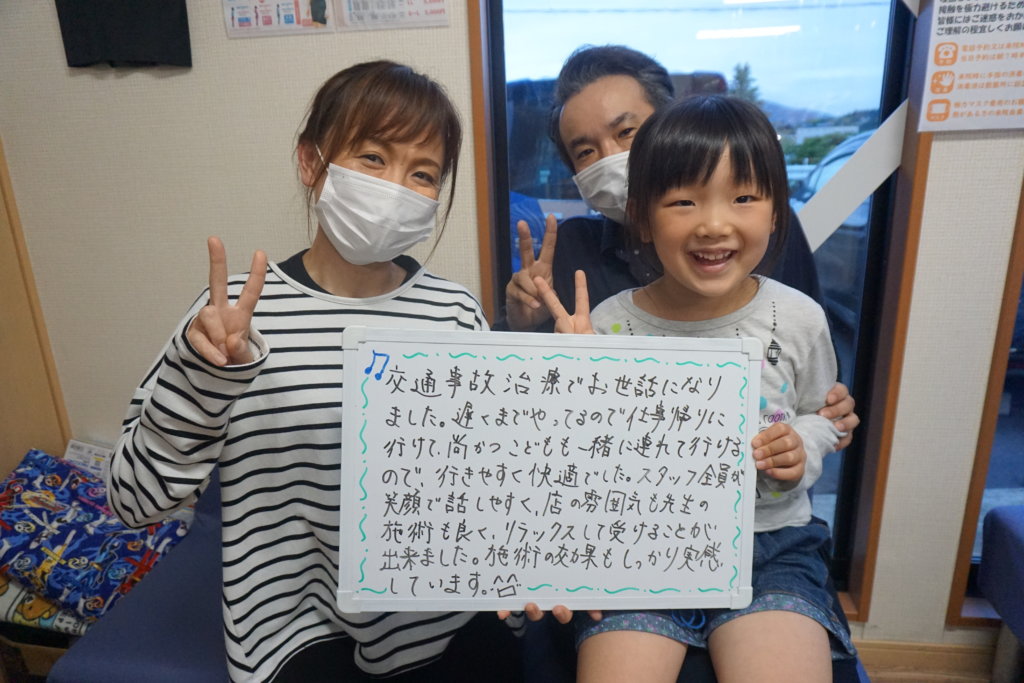 接触を極力避けるため
皆様にはご迷惑をおか
ご理解の程宜しくお願
♫交通事故治療でお世話になり
ました。遅くまでやってるので仕事帰りに
行けて、尚かつこどもも一緒に連れて行ける
ので、行きやすく快適でした。スタッフ全員が
笑顔で話しやすく、店の雰囲気も先生の
施術も良く、リラックスして受けることが
出来ました。施術の効果もしっかり実感
しています。^^